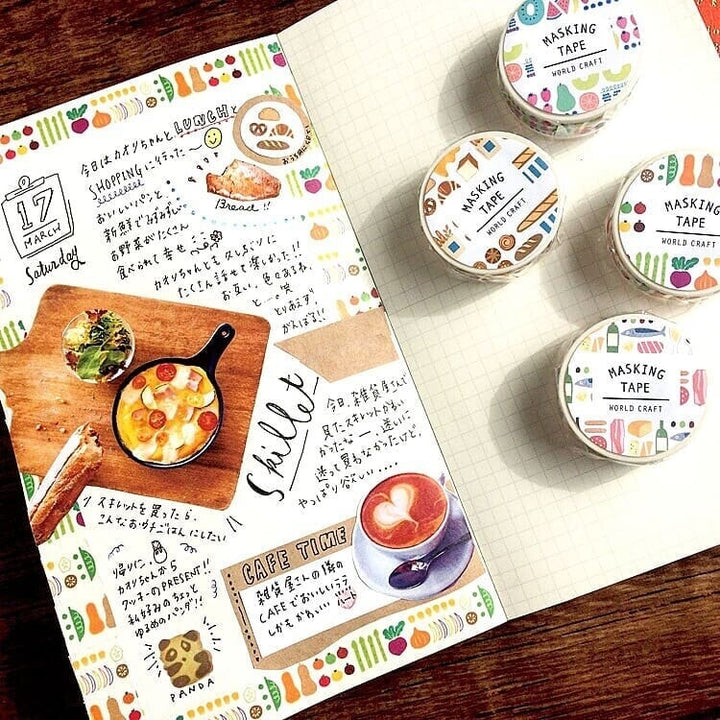 今日はカオリちゃんとLUNCHと
SHOPPINGに行った〜
おいしいパンと
新鮮でみずみずしい
お野菜がたくさん
食べられて幸せ
カオリちゃんとも久しぶりに
たくさん話せて楽しかった!!
お互い、色々あるね
と…笑
とりあえず、
がんばる!!
17
MARCH
Saturday
Bread!!
Skillet
今日、雑貨屋さんで
見たスキレットがかわい
かったなー、迷いに
迷って買わなかったけど、
やっぱり欲しい……
スキレットを買ったら、
こんなおうちごはんにしたい
帰りに、
カオリちゃんから
クッキーのPRESENT!!
私好みのちょっと
ゆるめのパンダ!!
PANDA
CAFE TIME
雑貨屋さんの隣の
CAFEでおいしいラテ
しかもかわいい
ハート
MASKING
TAPE
WORLD CRAFT
MASKING
TAPE
WORLD CRAFT
MASKING
TAPE
WORLD CRAFT
MASKING
TAPE
WORLD CRAFT